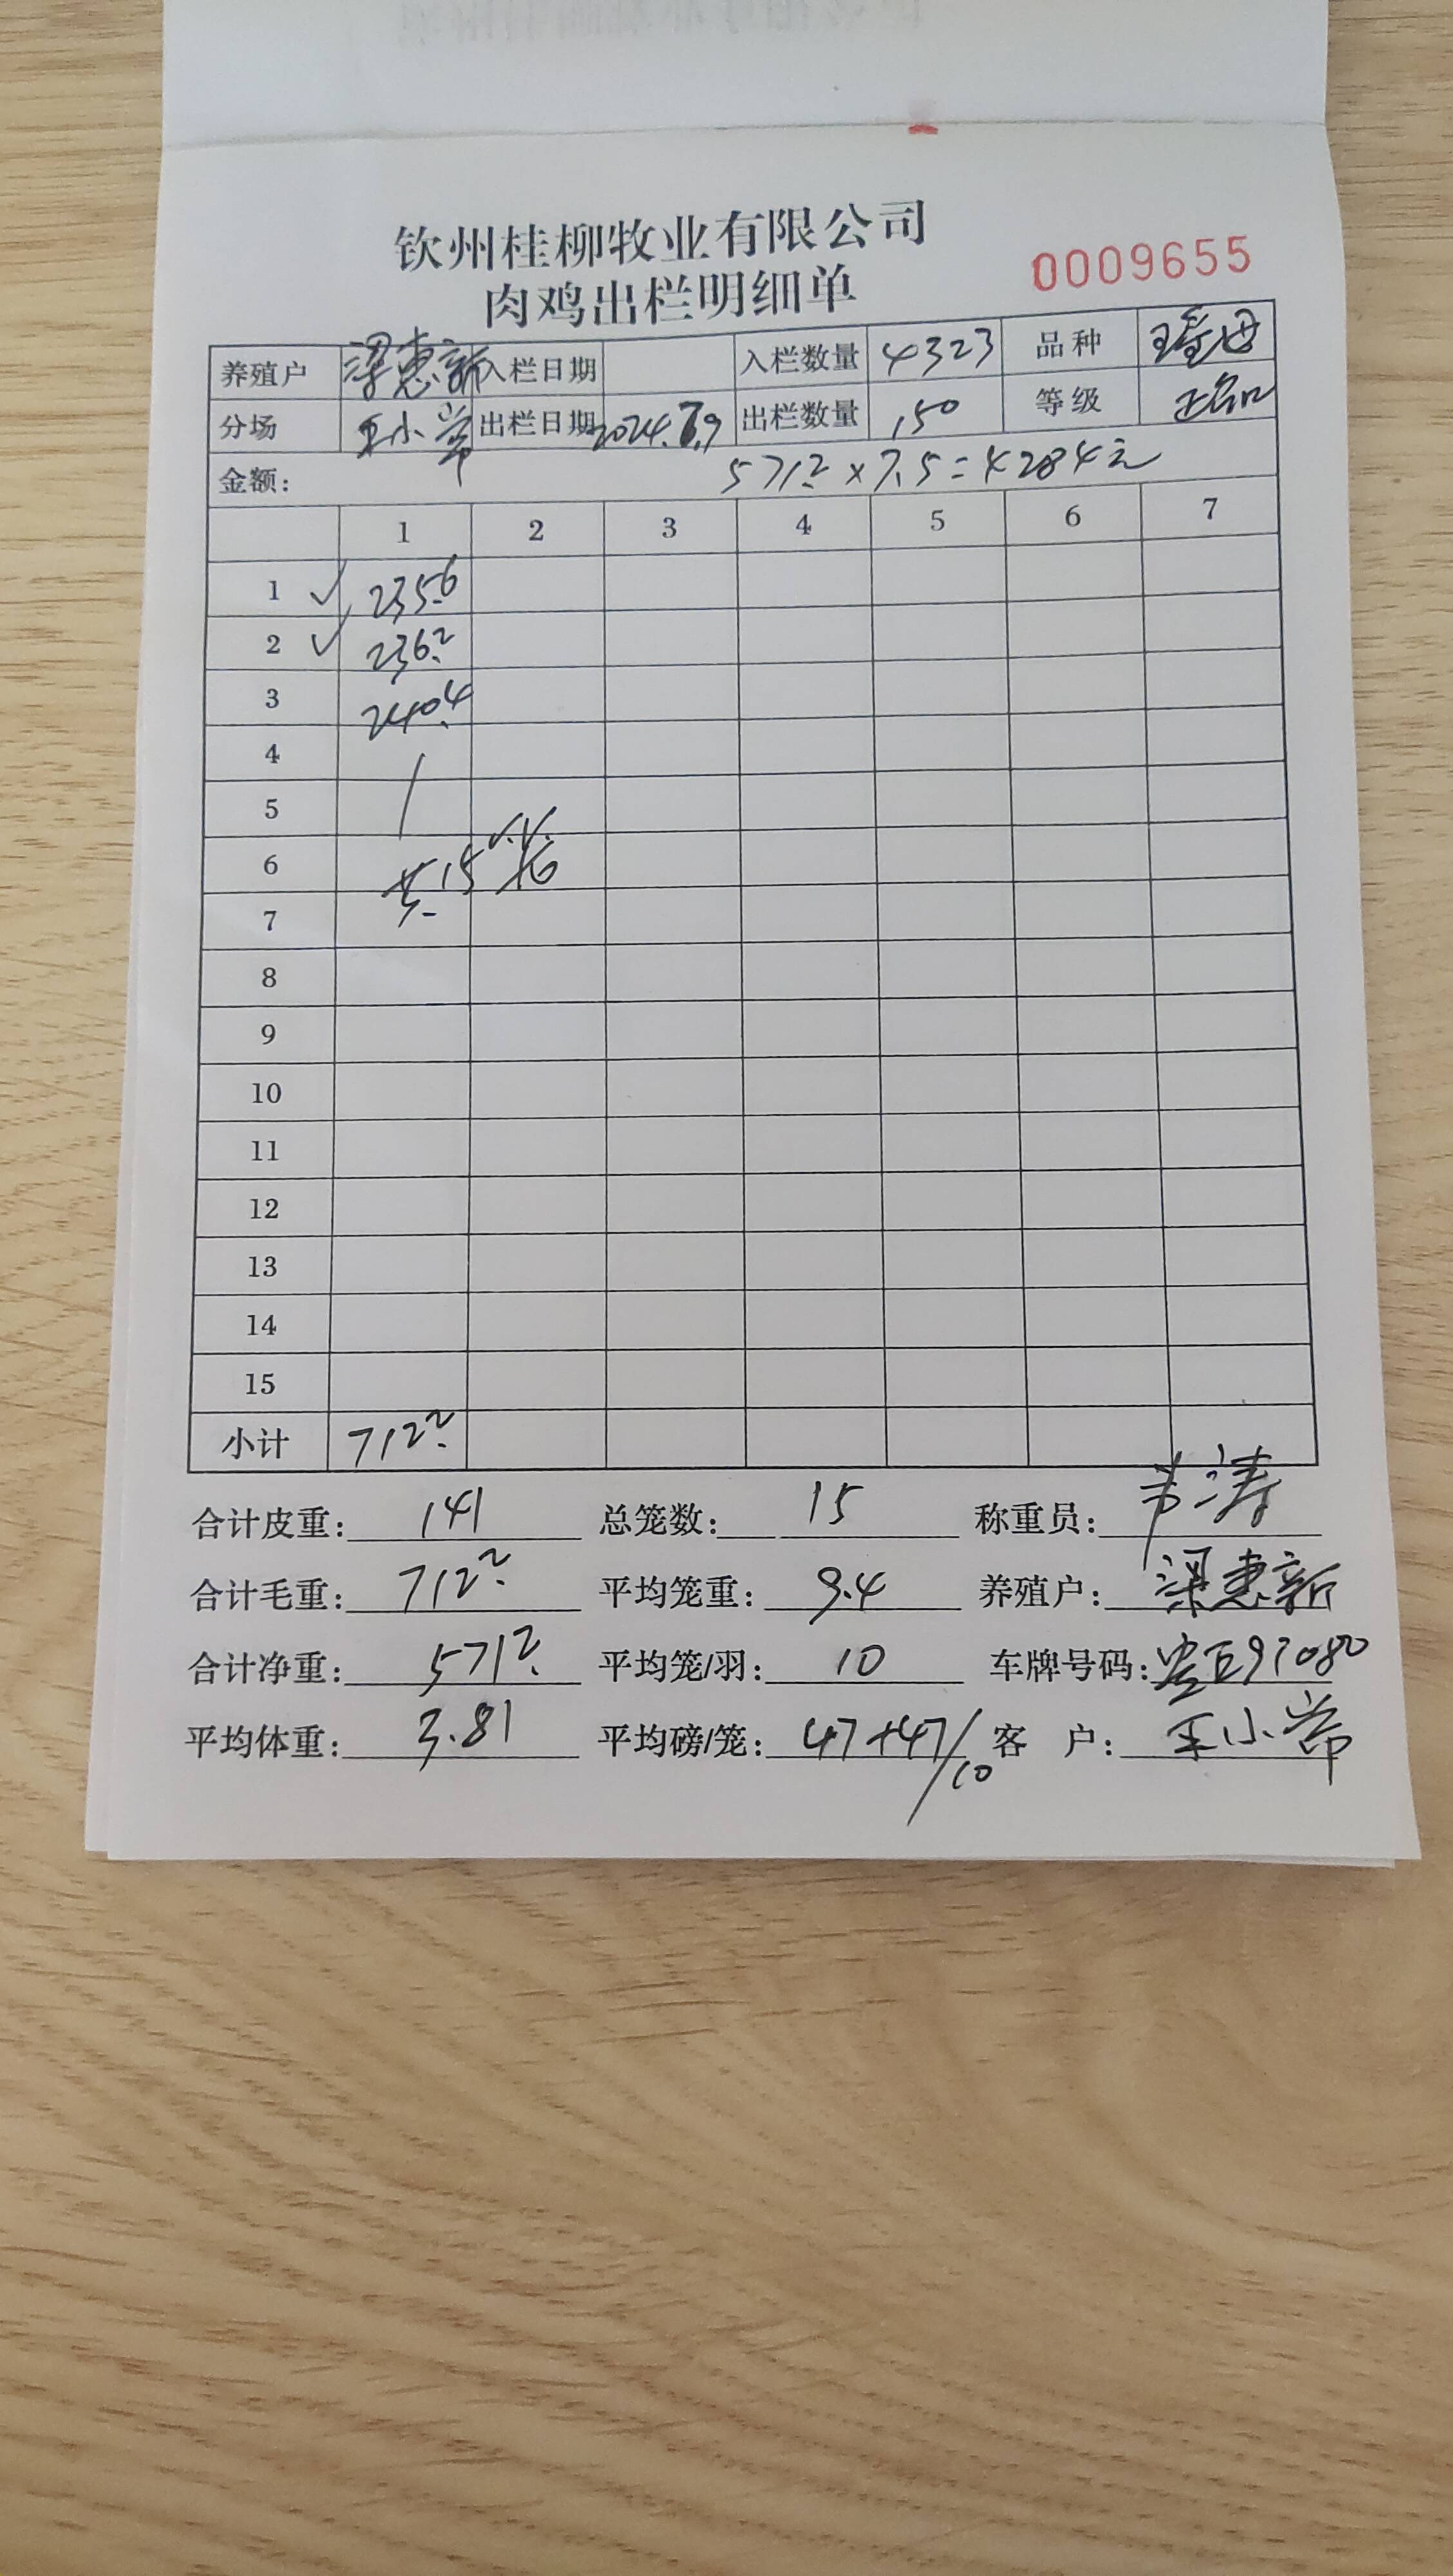 钦州桂柳牧业有限公司
肉鸡出栏明细单
0009655
养殖户 梁惠新 入栏日期 入栏数量 4323 品种
分场 王小 出栏日期 2024.7.9 出栏数量 150 等级 正品
金额: 571.2 x 7.5 = 4284元
1 2 3 4 5 6 7
1 ✓ 235.6
2 ✓ 236.2
3 240.4
4
5
6 共15笼
7
8
9
10
11
12
13
14
15
小计 712.2
合计皮重: 141 总笼数: 15 称重员: 韦涛
合计毛重: 712.2 平均笼重: 9.4 养殖户: 梁惠新
合计净重: 571.2 平均笼/羽: 10 车牌号码: 97080
平均体重: 3.81 平均磅/笼: 47+47/10 客户: 王小